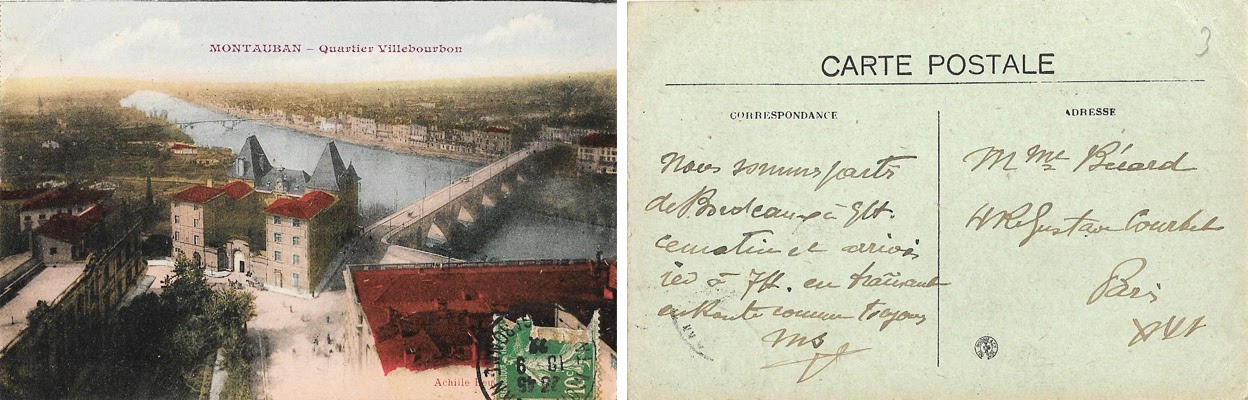 MONTAUBAN – Quartier Villebourbon
Achille
10c
CARTE POSTALE
3
CORRESPONDANCE
ADRESSE
Nous sommes partis
de Bordeaux à 9H.
ce matin et arrivés
ici à 7H. en traînant
en Route comme toujours
M Mme Béard
4 R Gustave Courbet
Paris
XVI